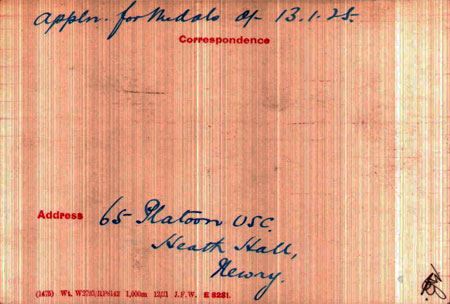 Appln. for Medals d/- 13.1.25.
Correspondence
Address 65 Platoon USC.
Heath Hall,
Newry.
(1475) Wt. W2702/RP6142 1,000m 12/21 J.F.W. E 8281.